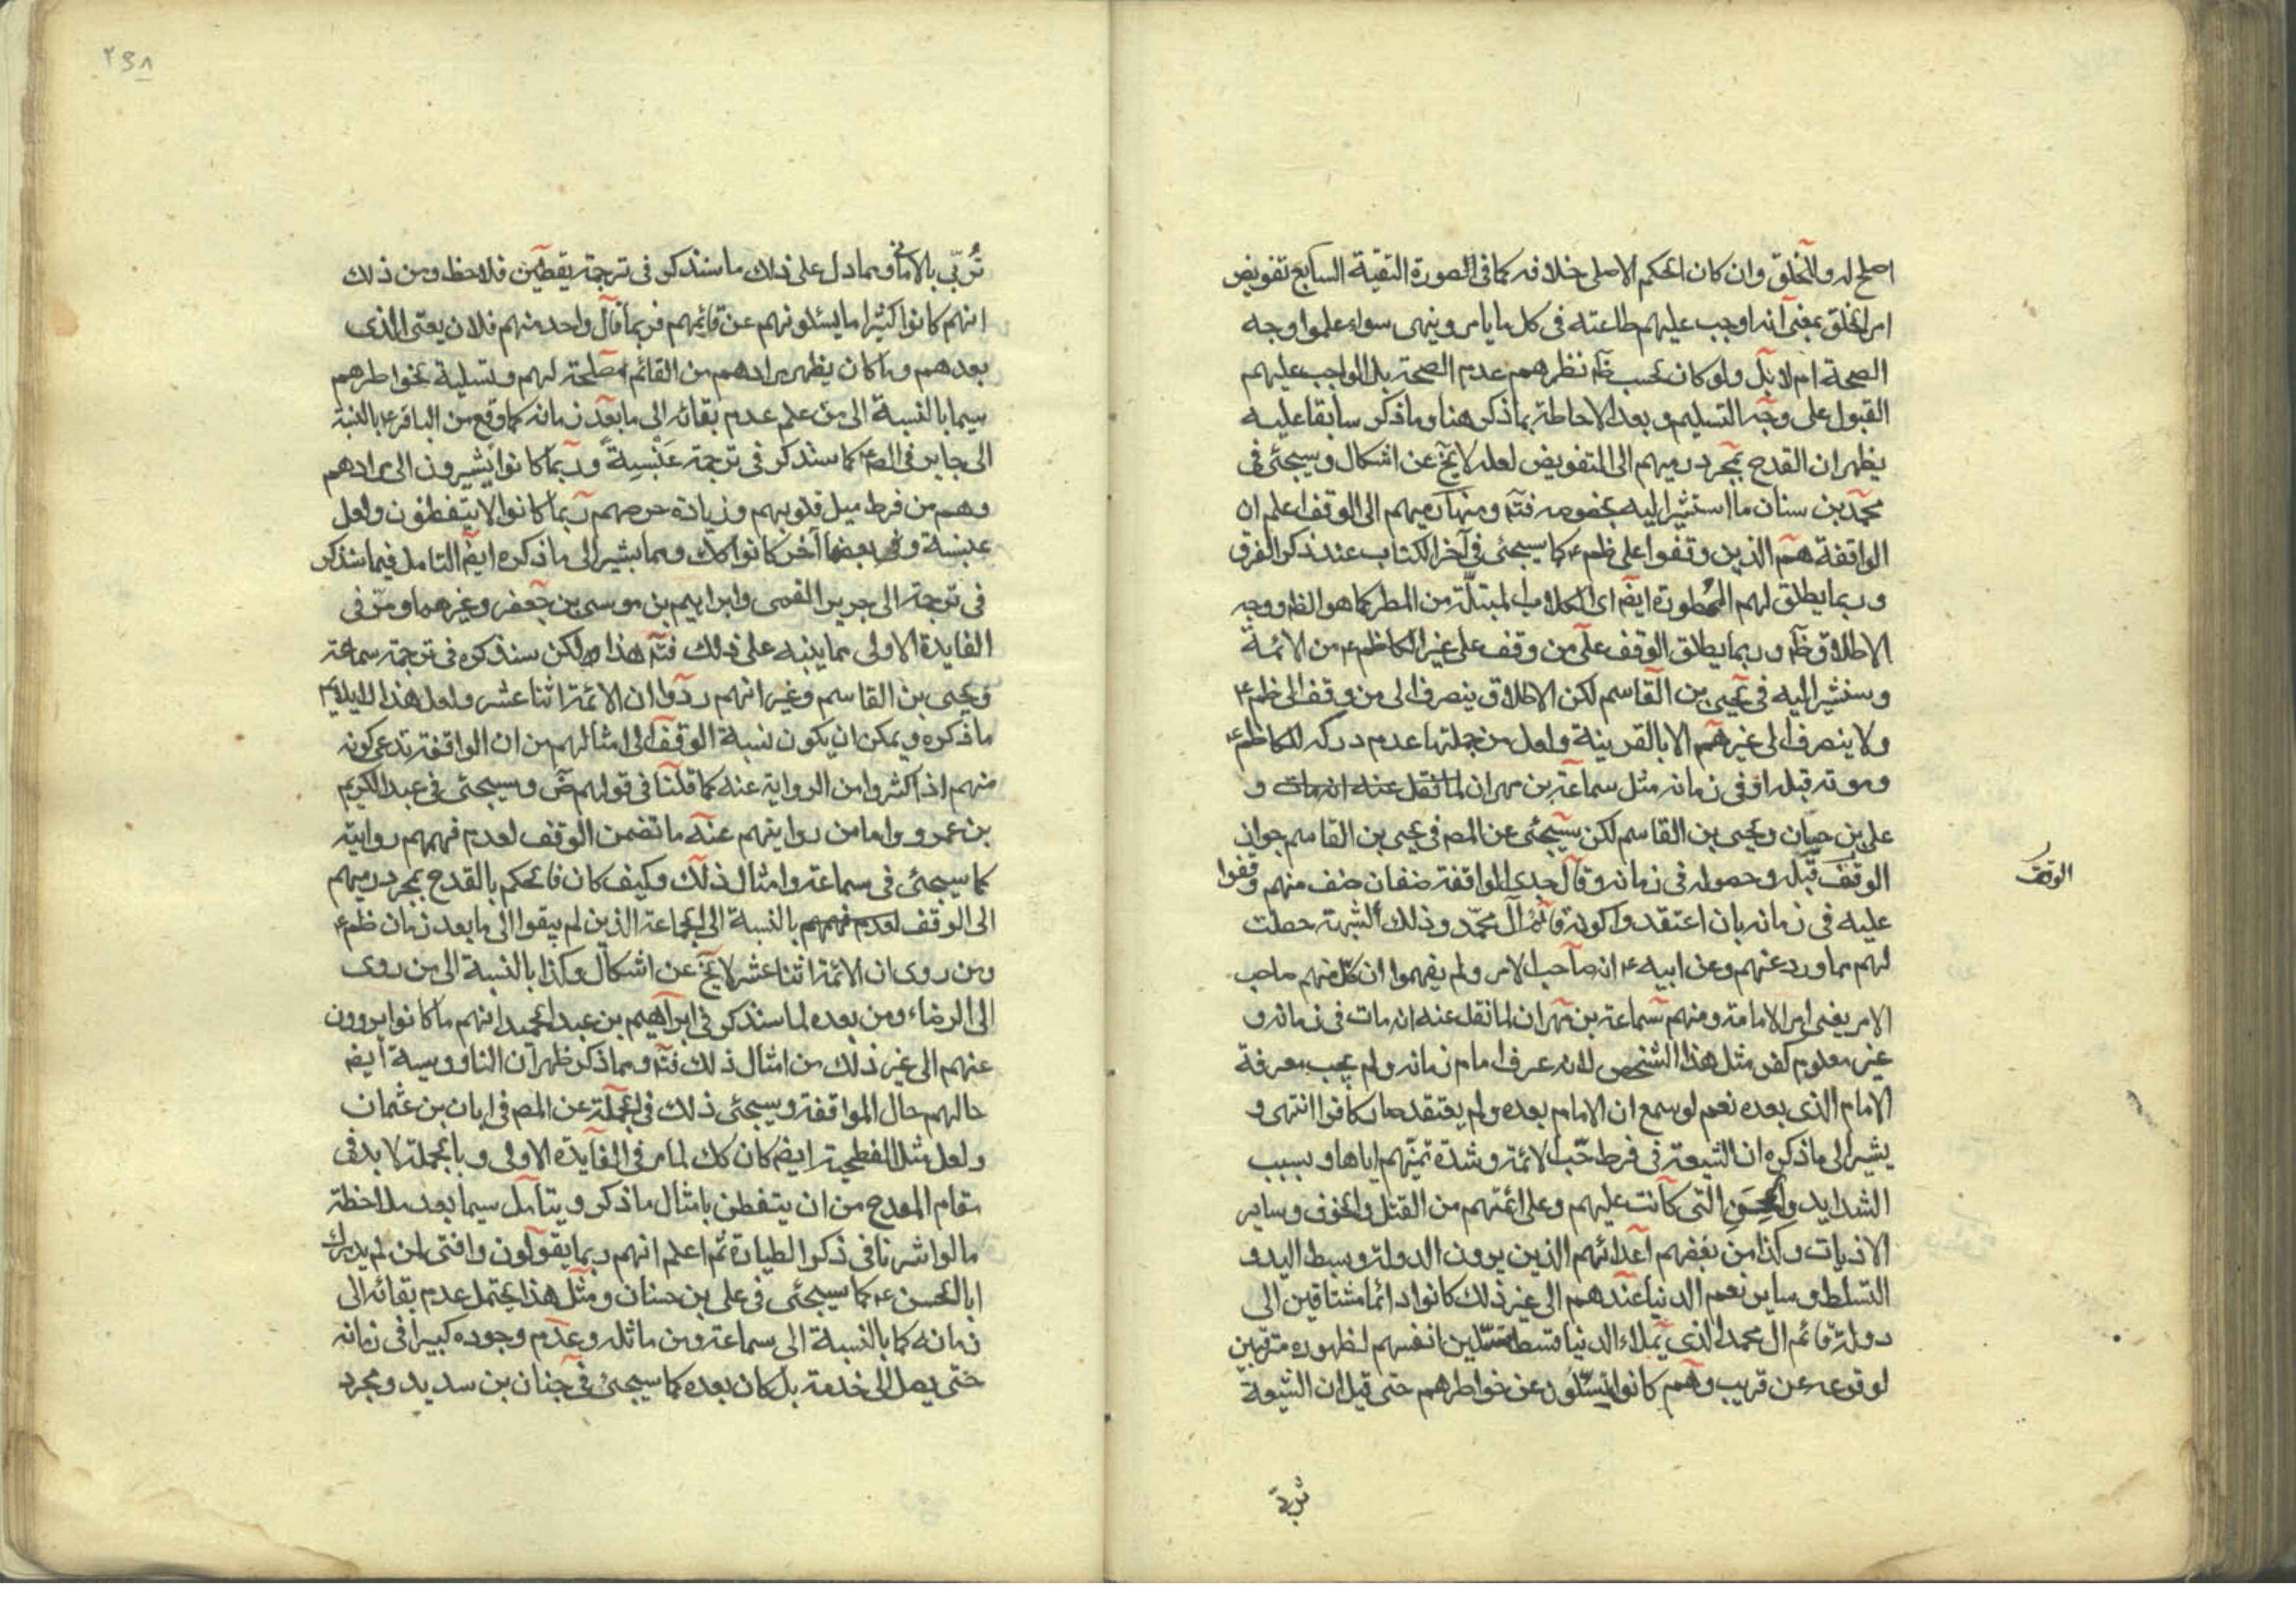 اصلح له وللخلق وان كان الحكم الاصلي خلافه كما في الصورة التقية السابع تفويض
امر الخلق بمعنى انه اوجب عليهم طاعته في كل ما يامر وينهى سواء علموا وجه
الصحة ام لا بل ولو كان بحسب ظآ نظرهم عدم الصحة بل الواجب عليهم
القبول على وجه التسليم وبعد الاحاطة بما ذكر هنا وما ذكر سابقا عليه
يظهر ان القدح بمجرد رميهم الى التفويض لعله لا يخ عن اشكال وسيجئ في
محمد بن سنان ما استشير اليه بخصوصه فتم ومنها رميهم الى الوقف اعلم ان
الواقفة هم الذين وقفوا على ظم ع كما سيجئ في آخر الكتاب عند ذكر الفرق
وربما يطلق لهم الممطورة ايضم اى الكلاب المبتلّة من المطر كما هو الظم ووجه
الاطلاق ظم وربما يطلق الوقف على من وقف على غير الكاظم ع من الائمة
وسنشير اليه في يحيى بن القاسم لكن الاطلاق ينصرف الى من وقف الى ظم ع
ولا ينصرف الى غيرهم الا بالقرينة ولعل من جملتها عدم دركه للكاظم ع
وموته قبله او في زمانه مثل سماعة بن مهران لما نقل عنه انه مات و
على بن حيان ويحيى بن القاسم لكن سيجئ عن المص في يحيى بن القاسم جواز
الوقف قبله وحصوله في زمانه وقال جدى الواقفة صنفان صنف منهم وقفوا
الوقف
عليه في زمانه بان اعتقدوا كونه قائم آل محمّد وذلك الشبهة حصلت
لهم مما ورد عنهم وعن ابيه ع انه صاحب الامر ولم يفهموا ان كل منهم صاحب
الامر يعني امر الامامة ومنهم سماعة بن مهران لما نقل عنه انه مات في زمانه و
غير معلوم كفر مثل هذا الشخص لانه عرف امام زمانه ولم يجب معرفة
الامام الذى بعده نعم لو سمع ان الامام بعده ولم يعتقد صار كافرا انتهى و
يشير الى ما ذكره ان الشيعة في فرط حبّ الائمة وشدة تمنّيهم اياها وبسبب
الشدايد والمحن التى كانت عليهم وعلى ائمتهم من القتل والخوف وساير
الاذيات وكذا من بغضهم اعدائهم الذين يرون الدولة وبسط اليد و
التسلط وساير نعم الدنيا عندهم الى غير ذلك كانوا دائما مشتاقين الى
دولة قائم ال محمد الذى يملاء الدنيا قسطا متسلّين انفسهم لظهوره مترقبين
لوقوعه عن قريب وهم كانوا يتسئلون عن خواطرهم حتى قيل ان الشيعة
تربّى
٢٩٨
تُربّى بالاماني ومما دل على ذلك ما سنذكر في ترجمة يقطين فلاحظ ومن ذلك
انهم كانوا كثيرا ما يسئلونهم عن قائمهم فربما قال واحد منهم فلان يعنى الذى
بعدهم وما كان يظهر مرادهم من القائم مصلحة لهم وتسلية لخواطرهم
سيما بالنسبة الى من علم عدم بقائه الى ما بعد زمانه كما وقع من الباقر ع بالنسبة
الى جابر في الصم ع كما سنذكر في ترجمة عَنْبسةَ وربما كانوا يشيرون الى مرادهم
وهم من فرط ميل قلوبهم وزيادة حرصهم ربما كانوا لا يتفطنون ولعل
عنبسة وبعضا آخر كانوا كك ومما يشير الى ما ذكره ايضم التامل فيما سنذكر
في ترجمة الى جرير القمى وابراهيم بن موسى بن جعفر وغيرهما ومرّ في
الفايدة الاولى مما ينبه على ذلك فتم هذا ولكن سنذكره في ترجمة سماعة
ويحيى بن القاسم وغير انهم رووا ان الائمة اثنا عشر ولعل هذا لا يلائم
ما ذكره ويمكن ان يكون نسبة الوقف الى امثالهم من ان الواقفة تدعى كونه
منهم اذا كثروا من الرواية عنه كما قلنا في قولهم ضّ وسيجئ في عبد الكريم
بن عمرو واما من روايتهم عنه ما تضمن الوقف لعدم فهمهم رواية
كما سيجئ في سماعة وامثال ذلك وكيف كان فالحكم بالقدح بمجرد رميهم
الى الوقف لعدم فهمهم بالنسبة الى الجماعة الذين لم يبقوا الى ما بعد زمان ظم ع
ومن روى ان الائمة اثنا عشر لا يخ عن اشكال وكذا بالنسبة الى من روى
الى الرضاء ومن بعده لما سنذكر في ابراهيم بن عبد الحميد انهم ما كانوا يروون
عنهم الى غير ذلك من امثال ذلك فتم ومما ذكر ظهر ان الناووسية ايضم
حالهم حال الواقفة وسيجئ ذلك في الجملة عن المص في ابان بن عثمان
ولعل مثل الفطحية ايضم كان كك لما مر في الفايدة الاولى وبالجملة لا بد في
مقام القدح من ان يتفطن بامثال ما ذكر ويتأمل سيما بعد ملاحظة
ما لو اشرنا في ذكر الطيارة ثم اعلم انهم ربما يقولون واقفى لمن لم يدرك
ابا الحسن ع كما سيجئ في على بن حسان ومثل هذا يحتمل عدم بقائه الى
زمانه كما بالنسبة الى سماعة ومن ماثله وعدم وجوده كبيرا في زمانه
حتى يصل الى خدمة بل كان بعده كما سيجئ في حنان بن سديد ومجرد